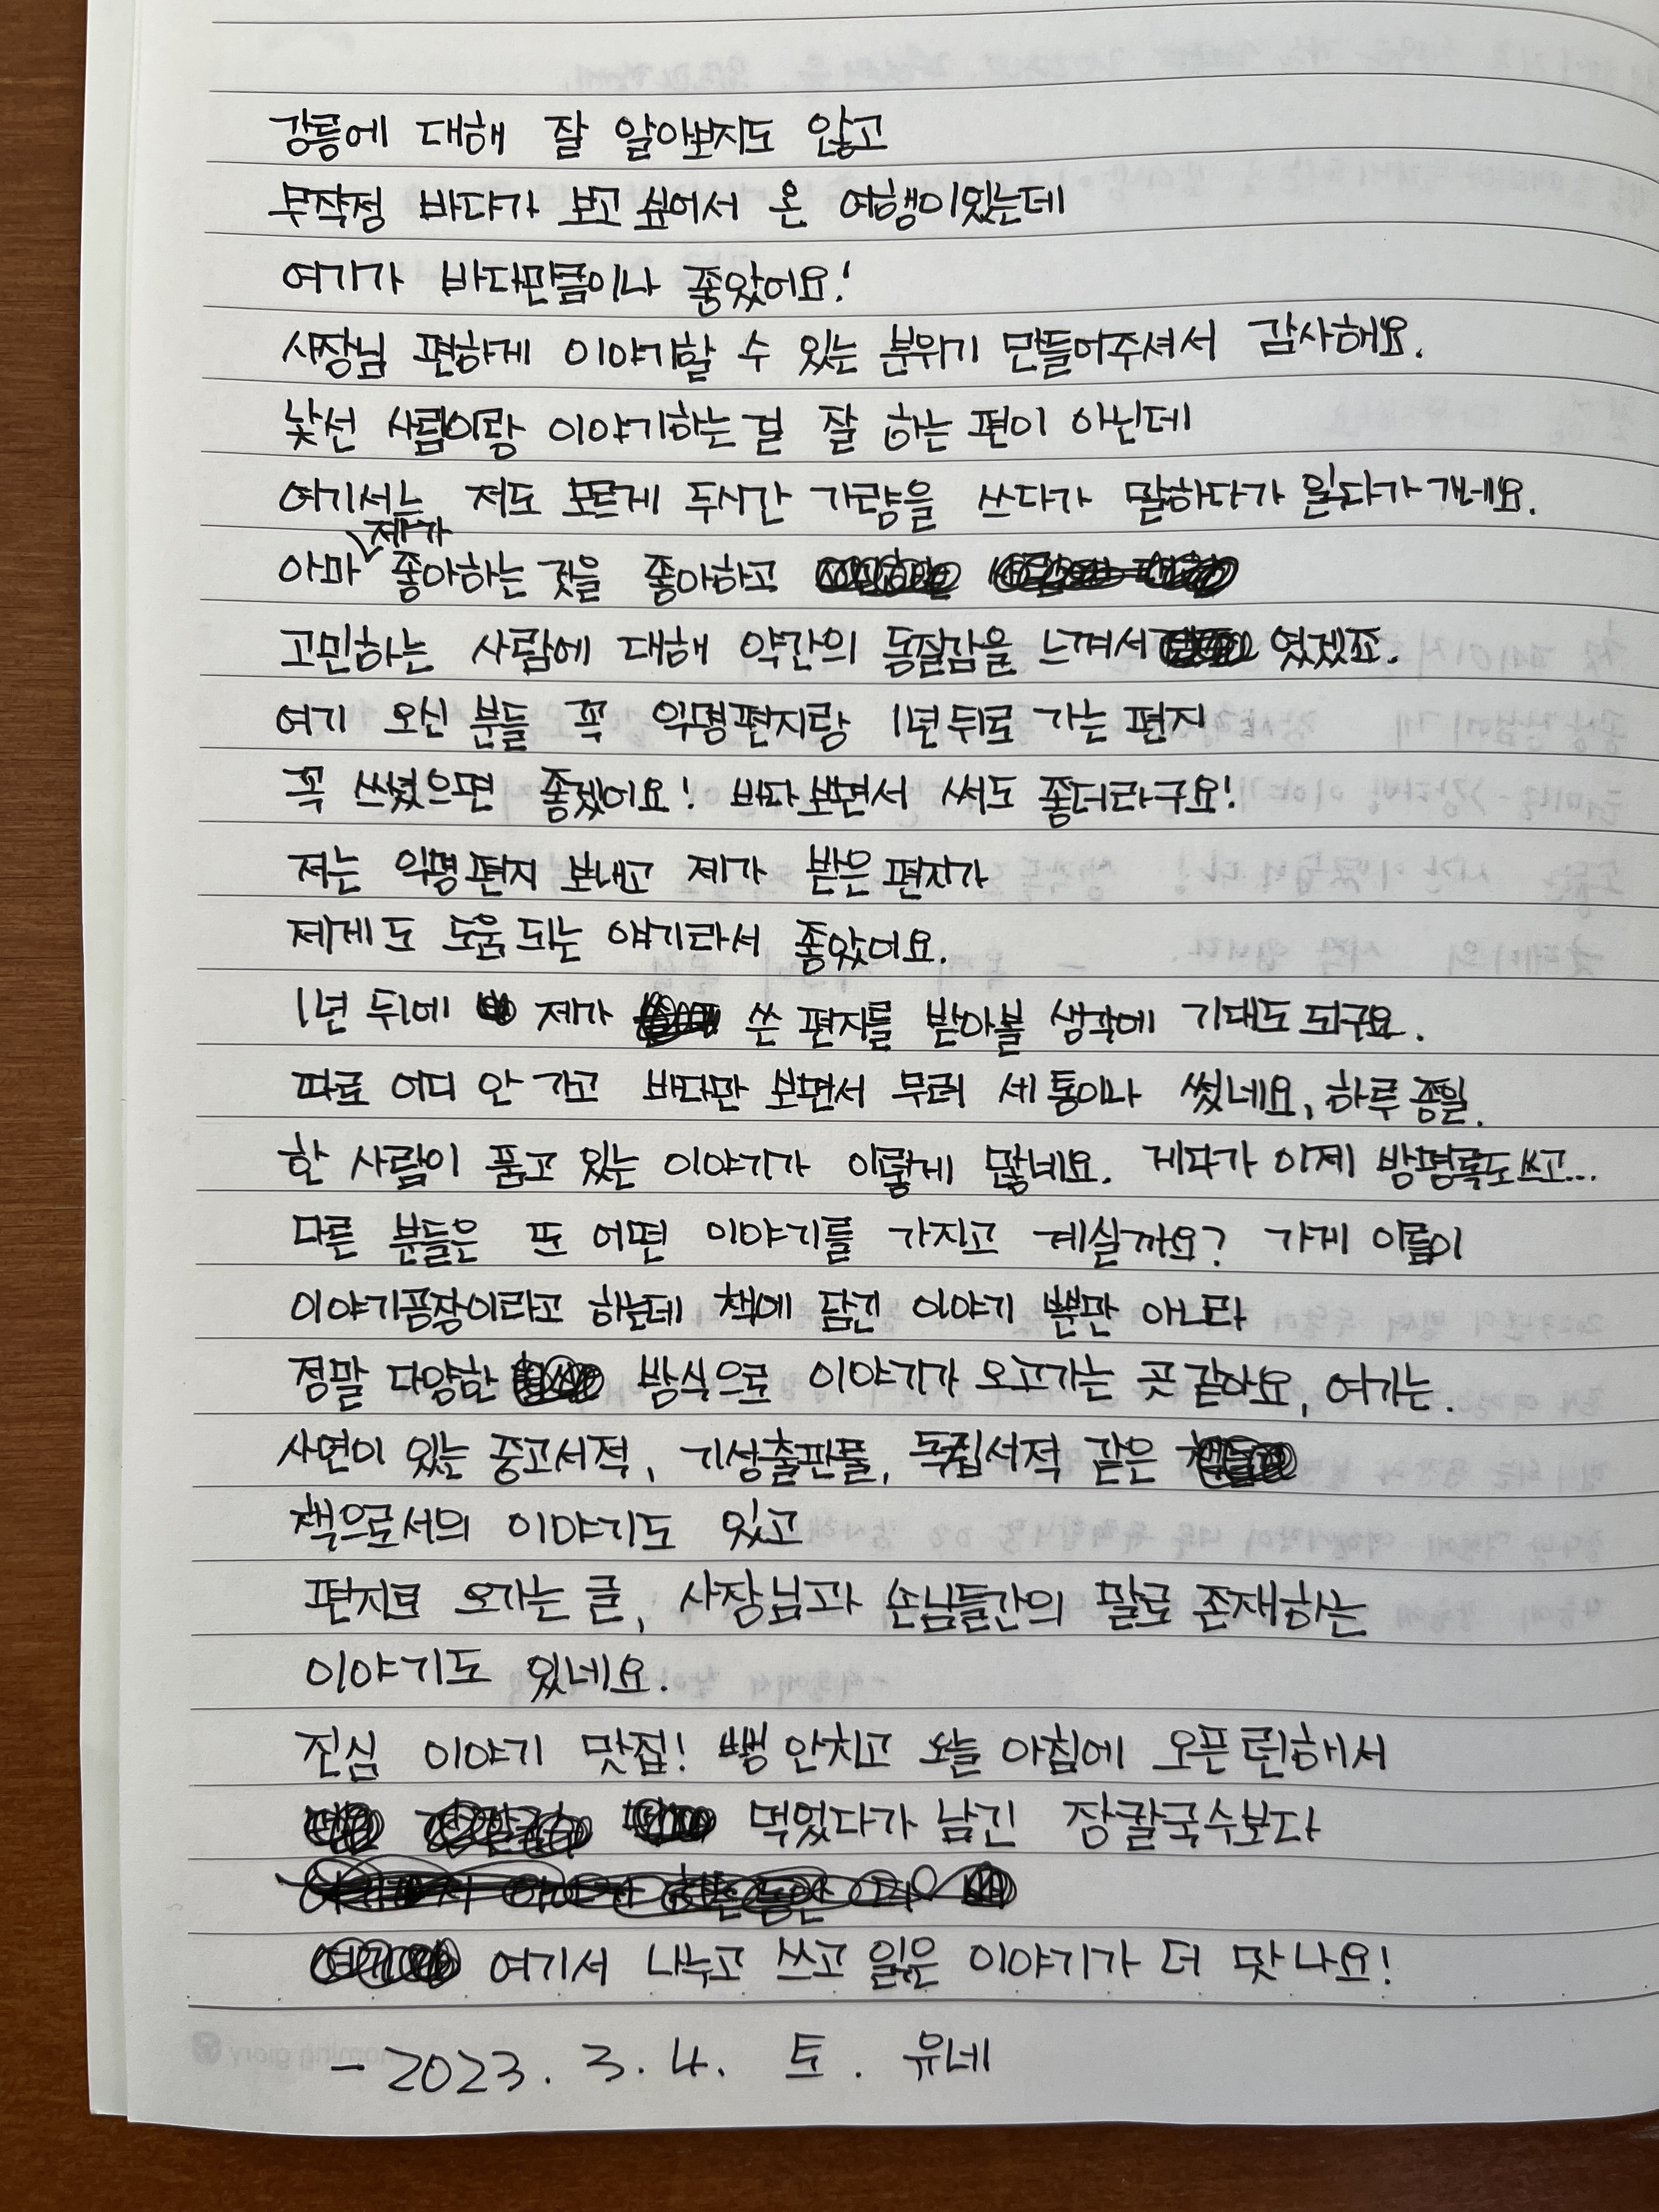 강릉에 대해 잘 알아보지도 않고
무작정 바다가 보고 싶어서 온 여행이었는데
여기가 바다만큼이나 좋았어요!
사장님 편하게 이야기할 수 있는 분위기 만들어주셔서 감사해요.
낯선 사람이랑 이야기하는 걸 잘 하는 편이 아닌데
여기서는 저도 모르게 두시간 가량을 쓰다가 말하다가 읽다가 가네요.
아마 제가 좋아하는 것을 좋아하고
고민하는 사람에 대해 약간의 동질감을 느껴서 였겠죠.
여기 오신 분들 꼭 익명편지랑 1년뒤로 가는 편지
꼭 쓰셨으면 좋겠어요! 바다 보면서 써도 좋더라구요!
저는 익명편지 보내고 제가 받은 편지가
제게도 도움 되는 얘기라서 좋았어요.
1년 뒤에 제가 쓴 편지를 받아볼 생각에 기대도 되구요.
따로 어디 안 가고 바다만 보면서 무려 세 통이나 썼네요, 하루 종일.
한 사람이 품고 있는 이야기가 이렇게 많네요. 게다가 이제 방명록도 쓰고...
다른 분들은 또 어떤 이야기를 가지고 계실까요? 가게 이름이
이야기공장이라고 하는데 책에 담긴 이야기 뿐만 아니라
정말 다양한 방식으로 이야기가 오고가는 곳 같아요, 여기는.
사연이 있는 중고서적, 기성출판물, 독립서적 같은
책으로서의 이야기도 있고
편지로 오가는 글, 사장님과 손님들간의 말로 존재하는
이야기도 있네요.
진심 이야기 맛집! 뻥 안치고 오늘 아침에 오픈런해서
먹었다가 남긴 장칼국수보다
여기서 나누고 쓰고 읽은 이야기가 더 맛나요!
- 2023. 3. 4. 토. 유네
morning glory